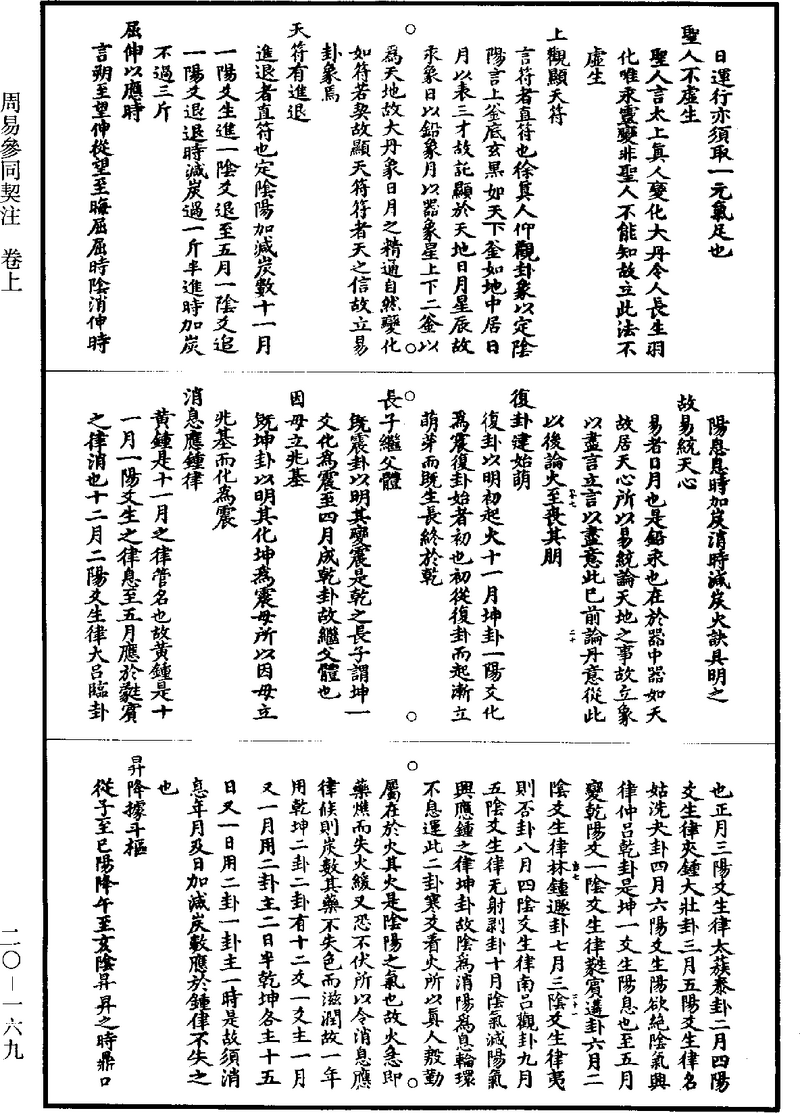 周易參同契注　卷上
二〇－一六九
日運行亦須取一元氣足也
聖人不虛生
聖人言太上真人變化大丹令人長生羽
化唯汞靈變非聖人不能知故立此法不
虛生
上觀顯天符
言符者直符也徐真人仰觀卦象以定陰
陽言上釜底玄黑如天下釜如地中居日
月以表三才故託顯於天地日月星辰故
汞象日以鉛象月以器象星上下二釜以
為天地故大丹象日月之精通自然變化
如符若契故顯天符符者天之信故立易
卦象焉
天符有進退
進退者直符也定陰陽加減炭數十一月
一陽爻生進一陰爻退至五月一陰爻追
一陽爻退退時減炭過一斤半進時加炭
不過三斤
屈伸以應時
言朔至望伸從望至晦屈屈時陰消伸時
陽息息時加炭消時減炭火訣具明之
故易統天心
易者日月也是鉛汞也在於器中器如天
故居天心所以易統論天地之事故立象
以盡言立言以盡意此已前論丹意從此
以後論火至喪其朋
復卦建始萌
復卦以明初起火十一月坤卦一陽爻化
為震復卦始者初也初從復卦而起漸立
萌芽而既生長終於乾
長子繼父體
既震卦以明其變震是乾之長子謂坤一
爻化為震至四月成乾卦故繼父體也
因母立兆基
既坤卦以明其化坤為震母所以因母立
兆基而化為震
消息應鍾律
黃鍾是十一月之律管名也故黃鍾是十
一月一陽爻生之律息至五月應於蕤賓
之律消也十二月二陽爻生律大呂臨卦
也正月三陽爻生律太蔟泰卦二月四陽
爻生律夾鍾大壯卦三月五陽爻生律名
姑洗夬卦四月六陽爻生陽欲絕陰氣興
律仲呂乾卦是坤一爻生陽息也至五月
變乾陽爻一陰爻生律蕤賓遘卦六月二
陰爻生律林鍾遯卦七月三陰爻生律夷
則否卦八月四陰爻生律南呂觀卦九月
五陰爻生律无射剥卦十月陰氣減陽氣
興應鍾之律坤卦故陰為消陽為息輪環
不息運此二卦寒爻看火所以真人慇勤
屬在於火其火是陰陽之氣也故火急即
藥燋而失火緩又恐不伏所以令消息應
律候則炭數其藥不失色而滋潤故一年
用乾坤二卦二卦有十二爻一爻主一月
又一月用二卦主二日半乾坤各主十五
日又一日用二卦一卦主一時是故須消
息年月及日加減炭數應於鍾律不失之
也
昇降據斗樞
從子至巳陽降午至亥陰昇昇之時鼎口